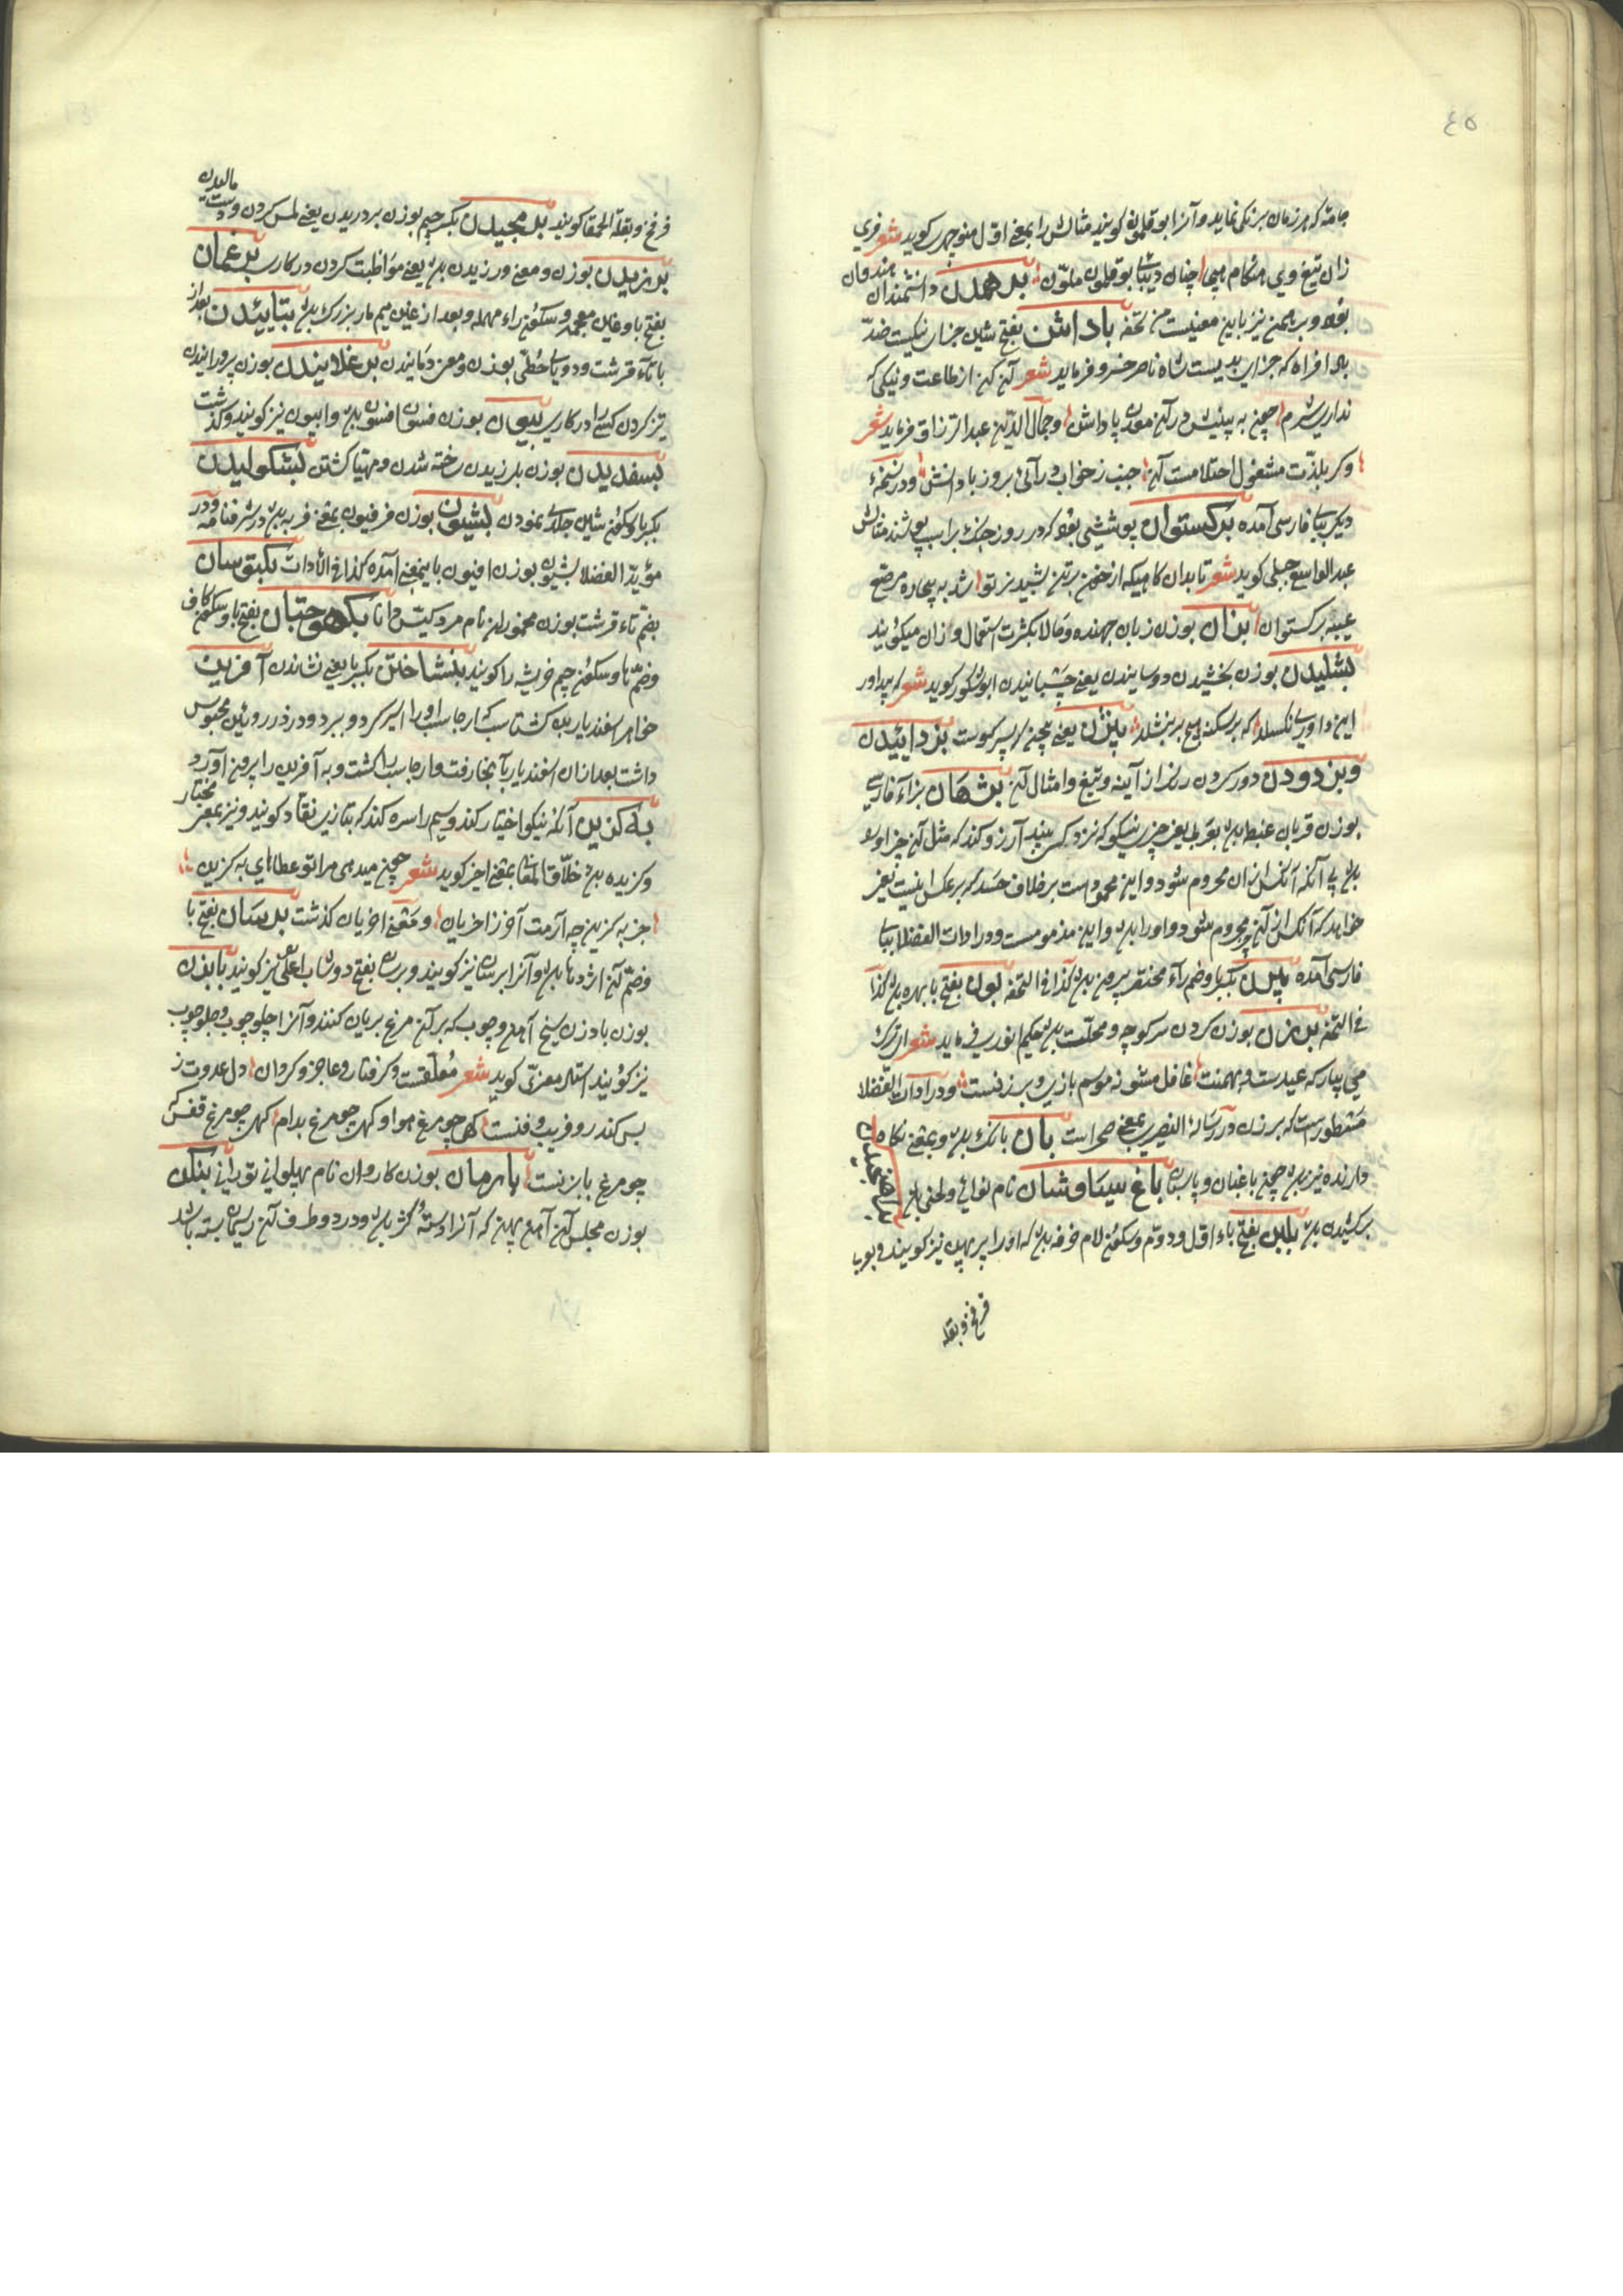 ٤٥
جامه که هر زمان برنکی نماید و آنرا بوقلمون کویند مثالش را بمعنی اول منوچهری کوید شعر فری
زان تیغ وی هنکام هیجا چنان دیبای بوقلمون ملون برهمن دانشمندان هندوان
بود و برهمین نیز باین معنیست من تحفه باداشن بفتح شین جزای نیکیست ضد
باد افراه که جزای بدیست شاه ناصر خسرو فرماید شعر آن کن از طاعت و نیکی که
نداری شرم چون به پیش در آن معدن پاداش و جمال الدین عبد الرزاق فرماید شعر
وکر بلذت مشغول احتلامست آن جنب ز خواب درآئی بروز باداشن و در نسخهٔ
دیکر ببای فارسی آمده برکستوان پوششی بود که در روز جنک بر اسب پوشند مثالش
عبد الواسع جبلی کوید شعر تا بدان کاهیکه از خون برتن شبدیز تو شد به بیجاده مرصع
عیبه برکستوان بزان بوزن زبان جهنده و حالا بکثرت استعمال وزان میکویند
بشلیدن بوزن بخشیدن دوسانیدن یعنی چسبانیدن ابوشکور کوید شعر که بیداور
این داوری نکسلد که بر سکنه هیچ بر بنشلد یعنی بچین کوست بزدائیدن
و بزدودن دور کردن زنک از آینه و تیغ و امثال آن بژهان بزاء فارسی
بوزن قربان غبطه باشد بعربی یعنی چیزی نیکو که نزد کسی بیند آرزو کند که مثل آن چیز او را
باشد بی آنکه آنکس از آن محروم شود و این محمود است بر خلاف حسد که بر عکس اینست یعنی
خواهد که آنکس از آن محروم شود و او را باشد و این مذمومست و در ادات الفضلا ببای
فارسی آمده بکسر با و ضم راء مختصر بیرون باشد کذا فی التحفه بون بفتح با بهره باشد کذا
فی التحفه برزن بوزن کردن سر کوچه و محلت باشد حکیم انوری فرماید شعر ای ترک
می بیار که عیدست و بهمنست غافل مشو نه موسم بازی و برزنست و در ادات الفضلا
مسطورست که برزن در رساله النصیر بمعنی صحراست بان بانک باشد و بمعنی نکاه
دارنده نیز باشد چون باغبان و پاسبان باغ سیاوشان نام نوائی و لحنی باشد
برکشیدن باشد بلبن بفتح باء اول و دوم و سکون لام خرفه باشد که او را پرپهن نیز کویند و بوبا
فرفخ و بقله
فرفخ و بقلة الحمقا کویند بر مجیدن بکسر جیم بوزن بردریدن یعنی لمس کردن و دست
مالیدن
برزیدن بوزن و معنی ورزیدن باشد یعنی مواظبت کردن در کاری برغمان
بفتح با و غین معجمه و سکون راء مهمله و بعد از غین میم مار بزرک باشد بتاییدن بعد از
با تاء قرشت و دو یای حطی بوزن و معنی دمانیدن برغلانیدن بوزن پرورانیدن
تیز کردن کسی را در کاری بیون بوزن فسون افسون باشد و ابیون نیز کویند و کذشت
بسغدیدن بوزن بلرزیدن ساخته شدن و مهیا کشتن بشکولیدن
بکسر با و سکون شین جلدی نمودن بشیون بوزن فرفیون بمعنی فربه باشد در شرفنامه و در
مؤید الفضلا بشیون بوزن افیون باینمعنی آمده کذا فی الادات بکتوسان
بضم تاء قرشت بوزن محمودان نام مردیست دانا بکهوجتان بفتح با و سکون کاف
و ضم ها و سکون جیم خریشه را کویند بنشاختن بکسر با یعنی نشاندن به آفرین
خواهر اسفندیار بن کشتاسب که ارجاسب او را اسیر کرد و ببرد و در دز روئین محبوس
داشت بعد از آن اسفندیار بآنجا رفت و ارجاسب را کشت و به آفرین را بیرون آورد
به کزین آنکه نیکو اختیار کند و سیم را سره کند که بتازی نقاد کویند و نیز بمعنی مختار
و کزیده باشد خلاق المعانی بمعنی اخیر کوید شعر چون میدهی مرا تو عطاهای به کزین
جز به کزین چه آرمت آخر ز اخریان و معنی اخریان کذشت برسان بفتح با
و ضم آن اژدها باشد و آنرا برسان نیز کویند و برسان بفتح دوشاب اعلی نیز کویند بابزن
بوزن بادزن سیخ آهن و چوب که بر آن مرغ بریان کنند و آنرا چلوچوب و جلوچوب
نیز کویند استاد معزی کوید شعر معلقست و کرفتار و عاجز و کردان دل عدوت ز
بس کندر و فریب و فنست کهی چو مرغ هوا و کهی چو مرغ بدام کهی چو مرغ قفس که
چو مرغ بابزنست بارمان بوزن کاروان نام پهلوانی تورانی بنکن
بوزن مجلس آن آهن پهن که آنرا دسته کژ باشد و در دو طرف آن ریسمان بسته باشد